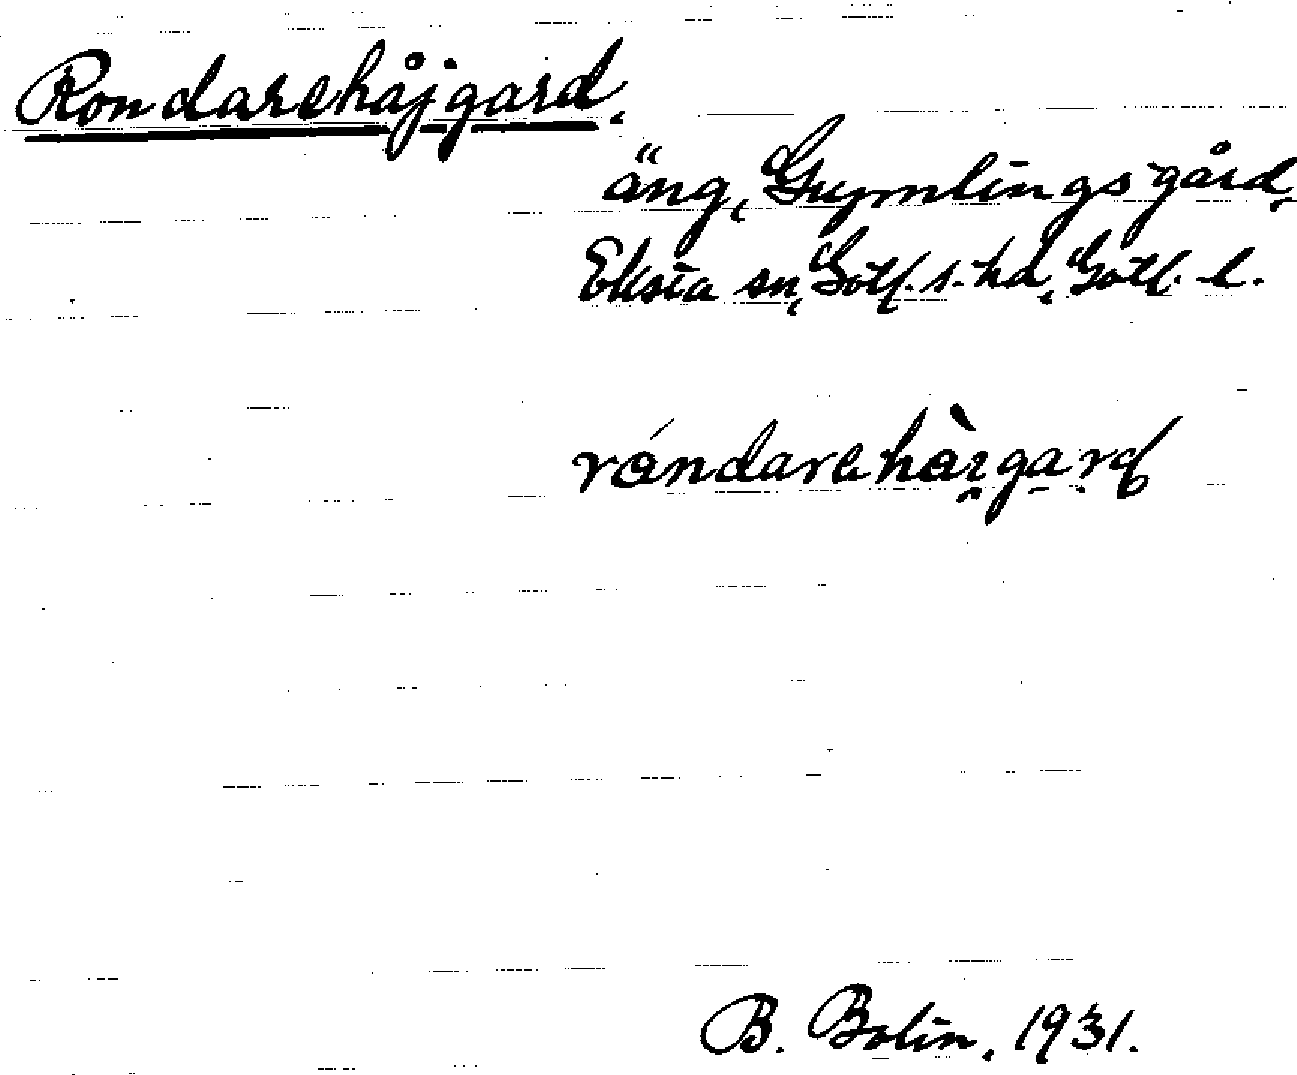 Rondarehåjgard.
äng, Gumlings gård,
Eksta sn, Gotl. s. hd, Gotl. l.
rándarehàrgard
B. Bolin, 1931.